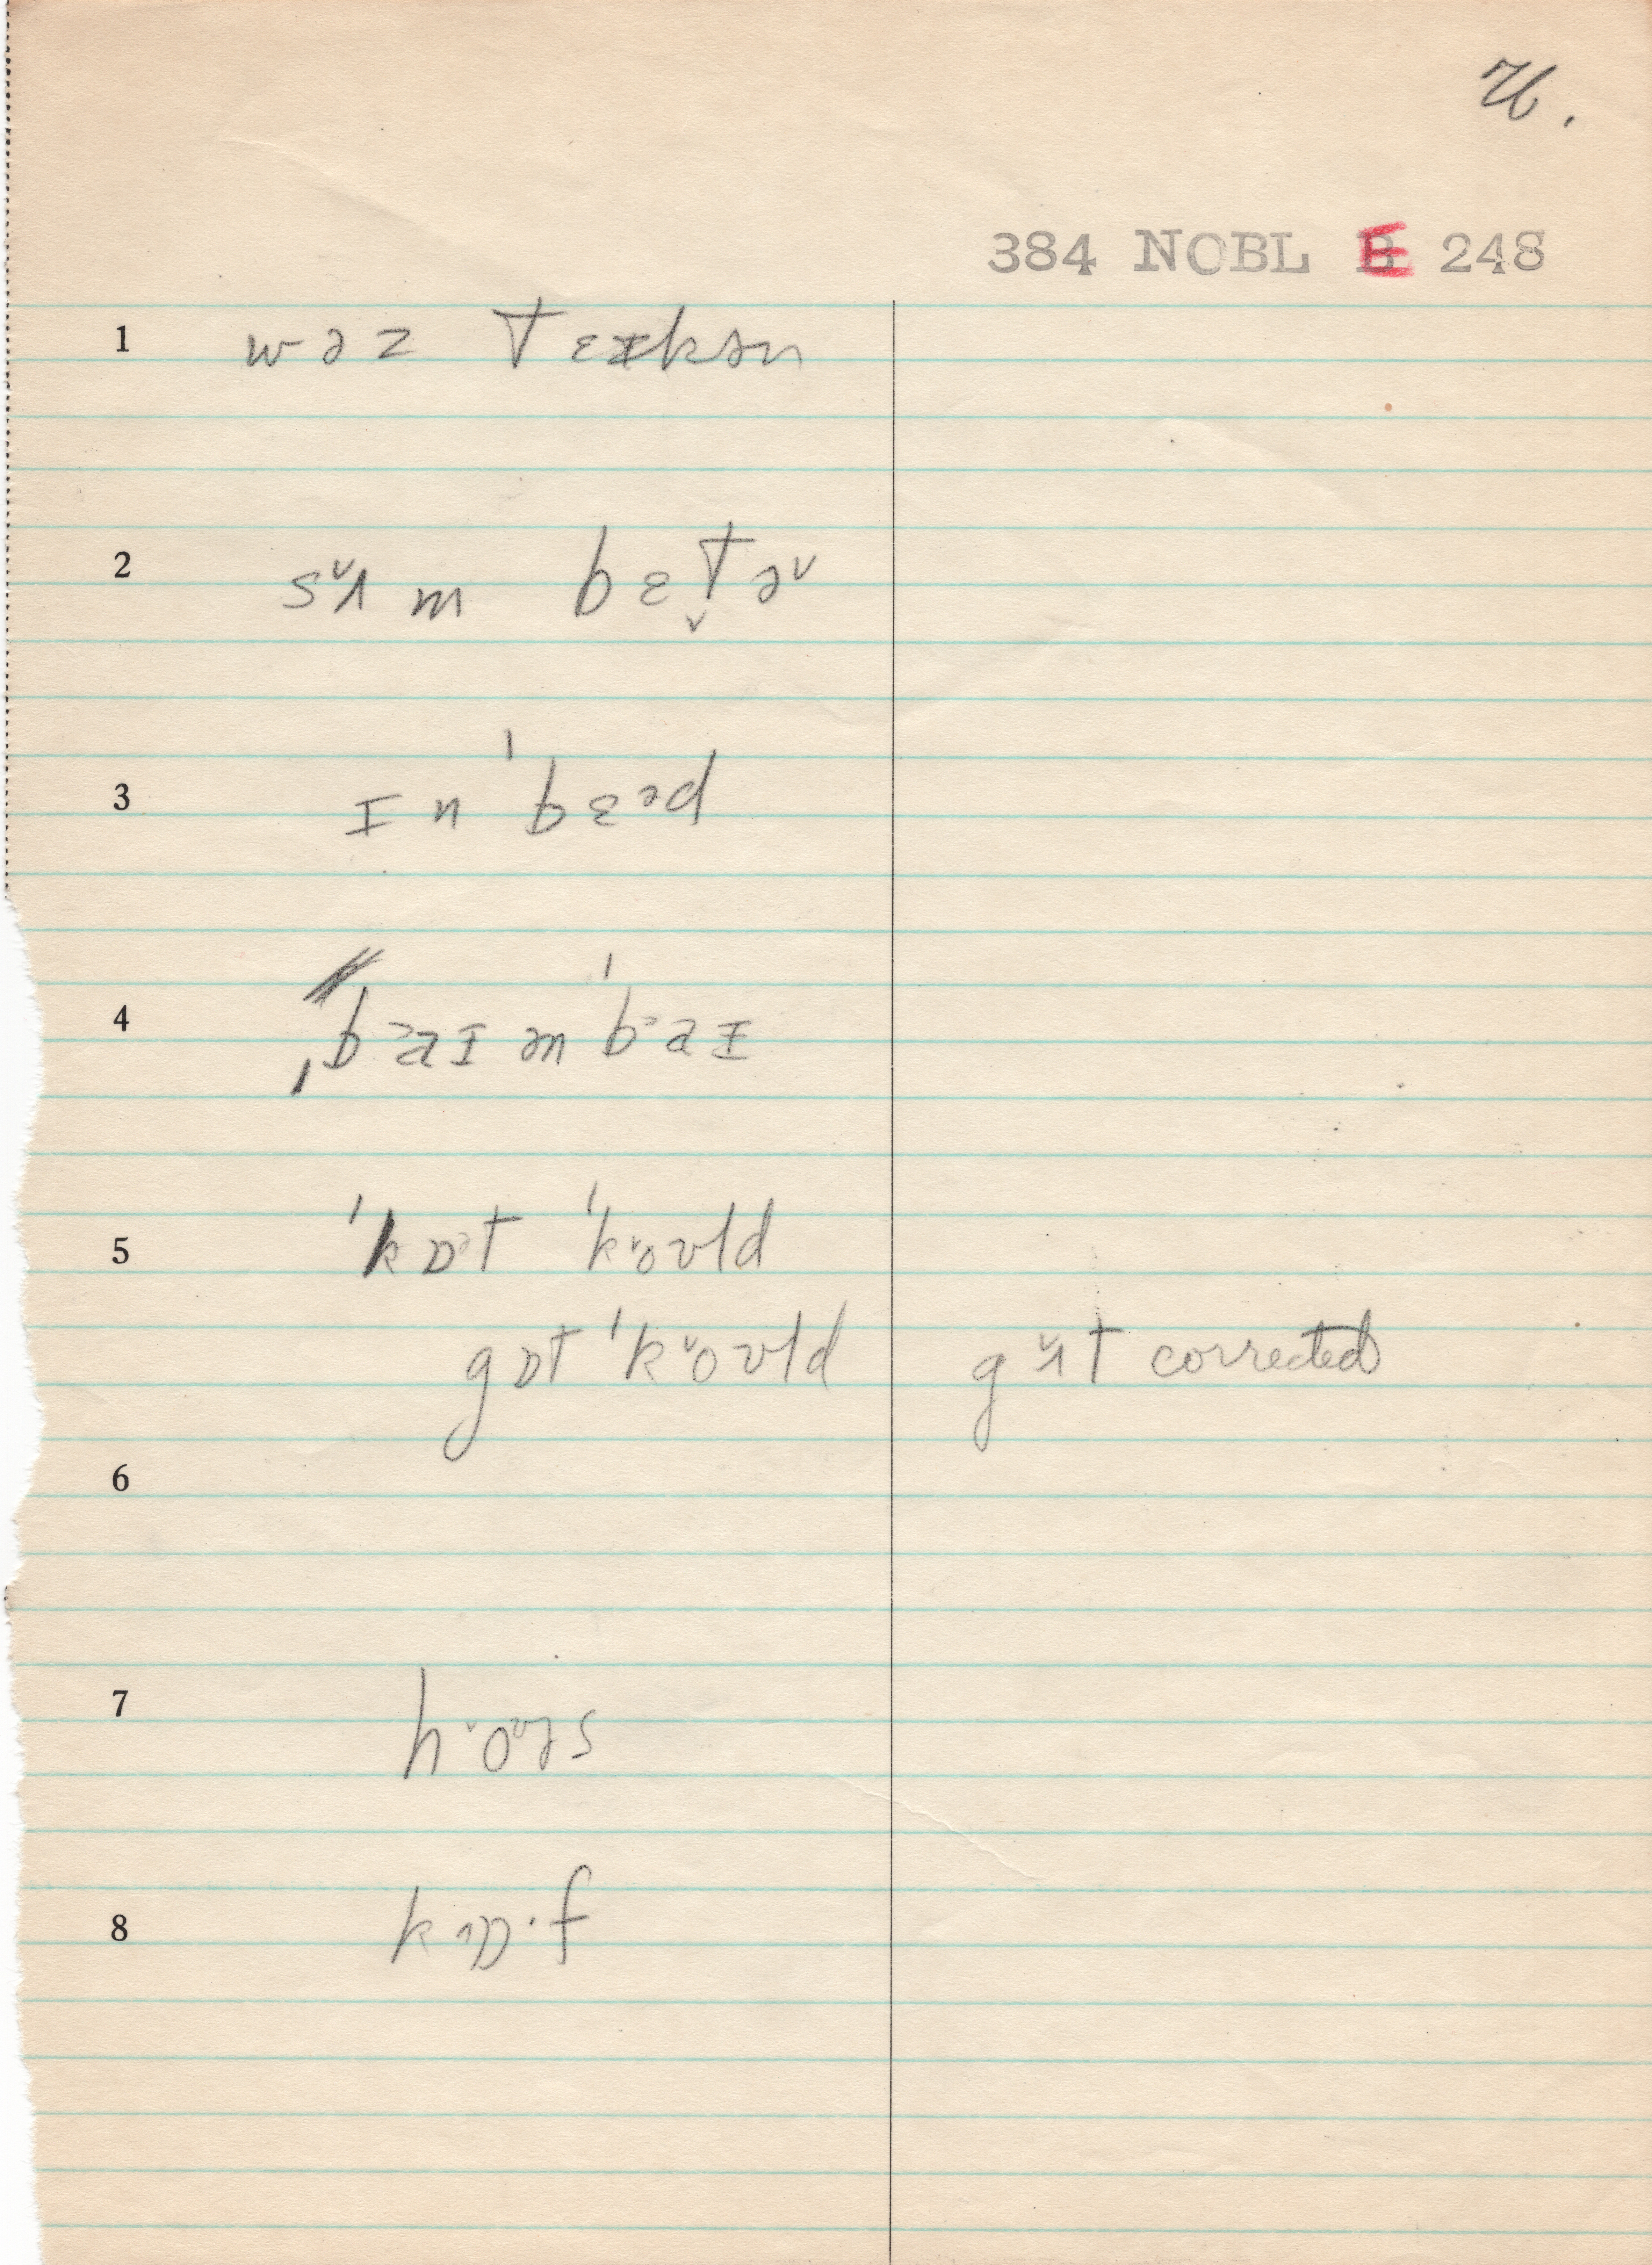 76.
384 NOBL E 248
1 wəz Tɛkən
2 sᵛʌm bɛT̬əᵛ
3 ɪn ˈbɛᵊd
4 ˌbᵊaɪ əm ˈbᵊaɪ
5 ˈkɒᵊT ˈkᵛoʊld
gɒT ˈkᵛoʊld gᵛʌT corrected
6
7 hᵛoᶷɚs
8 kɒɒ·f